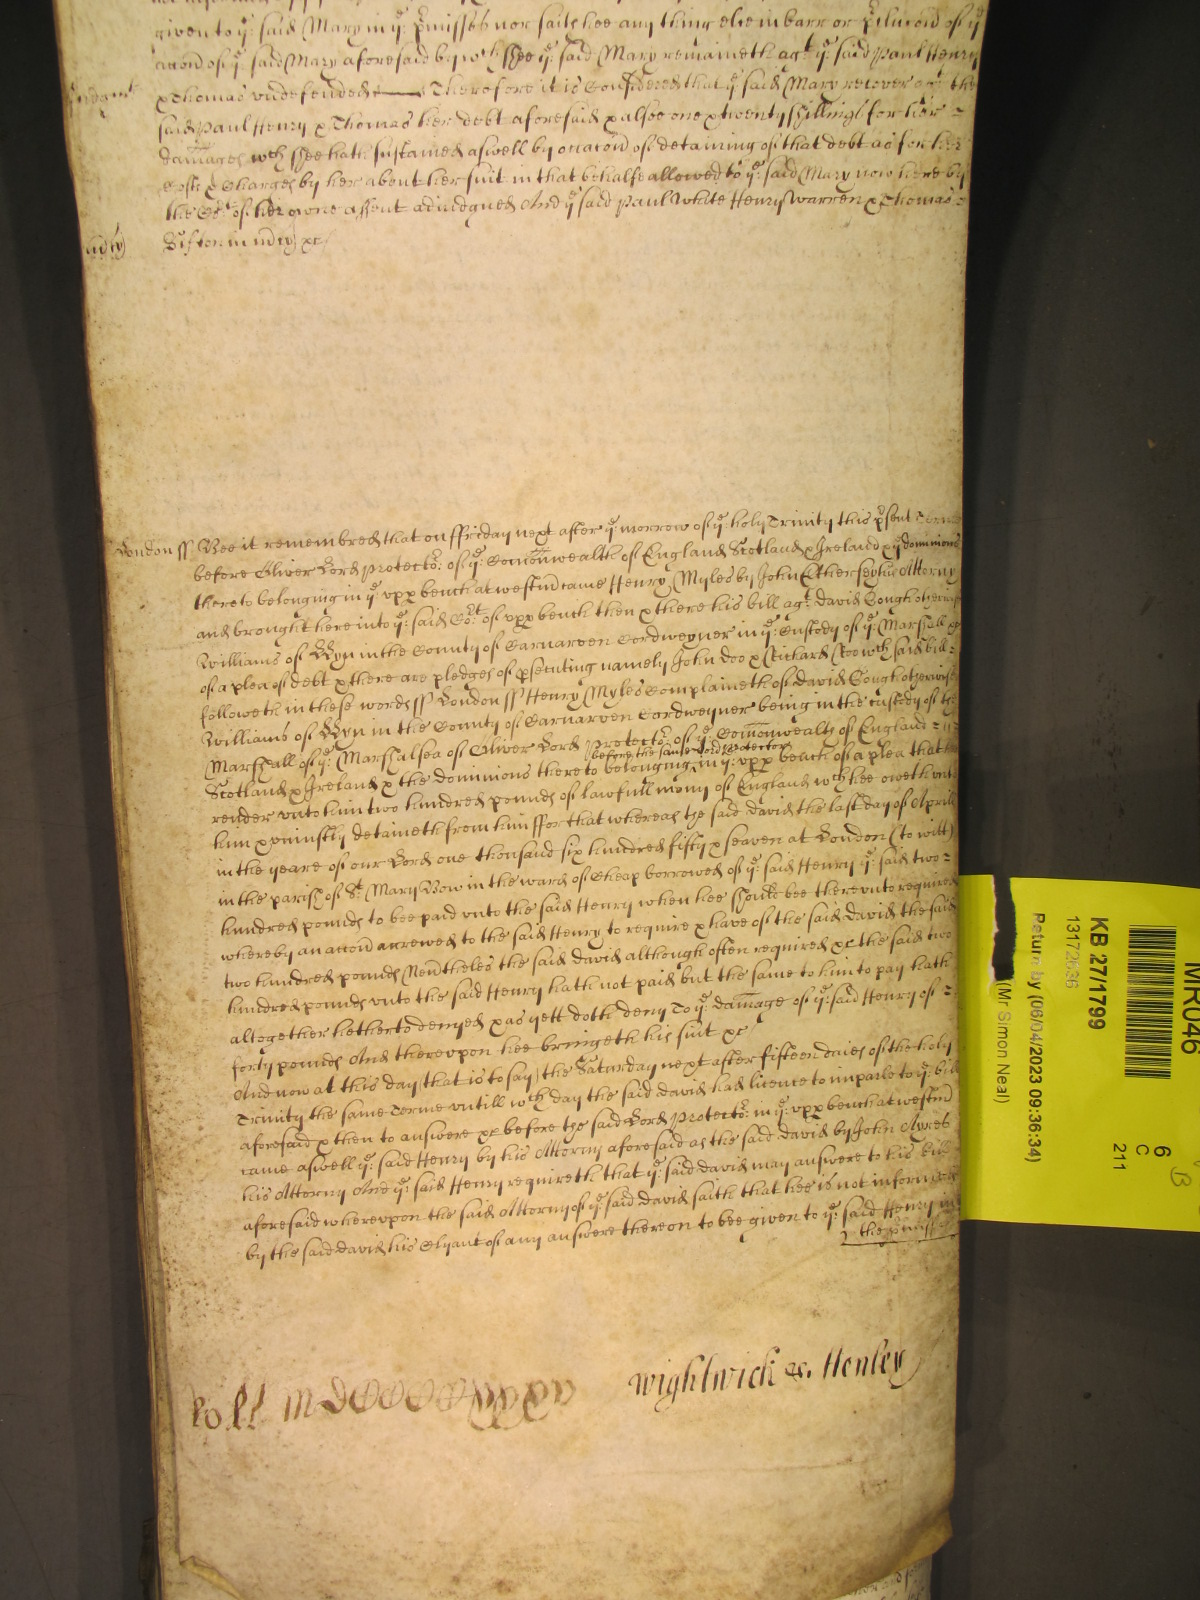 given to ye said Mary in ye pmisses nor saith hee any thing else in barr or pclucon of ye
accon of ye said Mary aforesaid by wch shee ye said Mary remaineth agt ye said Paul Henry
& Thomas undefended Therefore it is Considered that ye said Mary recover agt the
said Paul Henry & Thomas her debt aforesaid & alsoe one & twenty shillings for her
damages wch shee hath sustained aswell by occacon of detaining of that debt as for her
Costs & Charges by her about her suit in that behalfe allowed to ye said Mary now here by
the Cort of her owne assent adiudgued And ye said Paul White Henry Warren & Thomas
in mcy &c
London ss Bee it remembred that on ffriday next after ye morrow of ye holy Trinity this psent Terme
before Oliver Lord Protector of ye Comonwealth of England Scotland & Ireland & ye dominions
thereto belonging in ye upp bench at westm came Henry Myles by John Attorny
and brought here into ye said Cort of upp bench then & there his bill agt david Gough otherwise
Williams of in the County of Carnarven Cordweyner in ye Custody of ye Marshall &c
of a plea of debt & there are pledges of psecuting namely John doo & Richard Roo wch said bill
followeth in these words ss London ss Henry Myles Complaineth of david Gough otherwise
Williams of in the County of Carnarven Cordweyner being in the custody of the
Marshall of ye Marshalsea of Oliver Lord Protector of ye Comonwealth of England
before the same Lord Protector
Scotland & Ireland & the dominions thereto belonging in ye upp bench of a plea that hee
render unto him two hundred pounds of lawfull mony of England wch hee oweth unto
him & uniustly detaineth from him ffor that whereas the said david the last day of Aprill
in the yeare of our Lord one thousand six hundred fifty & seaven at London (to witt)
in the parish of St Mary Bow in the ward of Cheap borrowed of ye said Henry ye said two
hundred pounds to bee paid unto the said Henry when hee should bee thereunto required
whereby an accon accrewed to the said Henry to require & have of the said david the said
two hundred pounds Nevtheles the said david although often required &c the said two
hundred pounds unto the said Henry hath not paid but the same to him to pay hath
altogether hetherto denyed & as yett doth deny To ye damage of ye said Henry of
forty pounds And thereupon hee bringeth his suit &c
And now at this day that is to say the Saturday next after fifteen daies of the holy
Trinity the same Terme untill wch day the said david had licence to imparle to ye bill
aforesaid & then to answere &c before the said Lord Protector in ye upp bench at westm
came aswell ye said Henry by his Attorny aforesaid as the said david by John Ayres
his Attorny And ye said Henry requireth that ye said david may answere to his bill
aforesaid whereupon the said Attorny of ye said david saith that hee is not informed
by the said david his Clyant of any answere thereon to bee given to ye said Henry in
the pmisses
Roll
Wightwick &. Henley
MR046
6
C
211
KB 27/1799
13172636
Return by (06/04/2023 09:36:34)
(Mr Simon Neal)